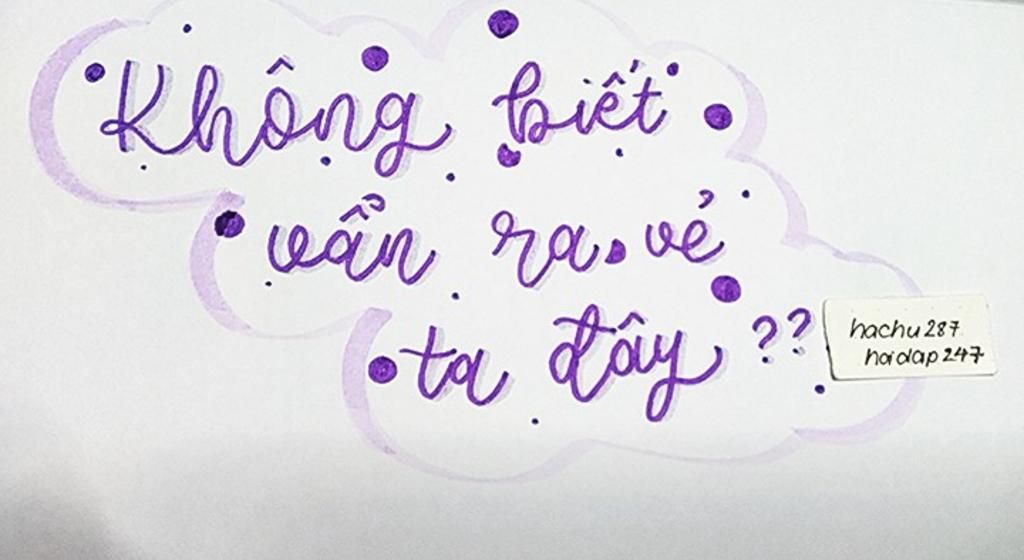 Không biết
vẩn ra vẻ
ta đây ??
hachu287
hoidap247